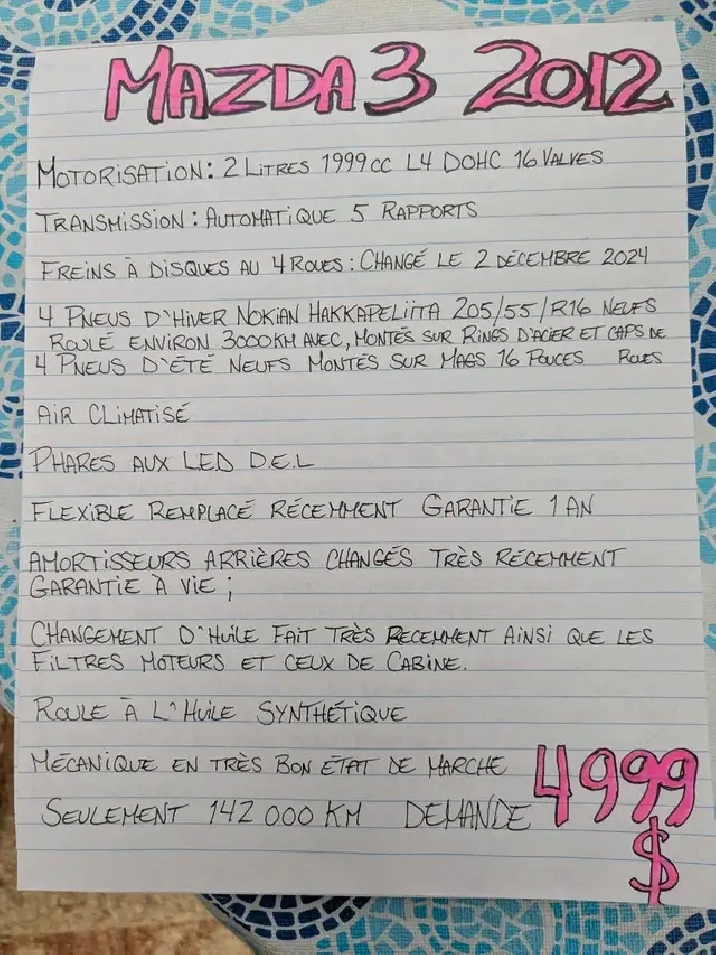 MAZDA 3 2012
MOTORISATION: 2 LITRES 1999CC L4 DOHC 16 VALVES
TRANSMISSION: AUTOMATIQUE 5 RAPPORTS
FREINS À DISQUES AU 4 ROUES: CHANGÉ LE 2 DÉCEMBRE 2024
4 PNEUS D'HIVER NOKIAN HAKKAPELIITA 205/55/R16 NEUFS
ROULÉ ENVIRON 3000KM AVEC, MONTÉS SUR RINGS D'ACIER ET CAPS DE ROUES
4 PNEUS D'ÉTÉ NEUFS MONTÉS SUR MAGS 16 POUCES
AIR CLIMATISÉ
PHARES AUX LED D.E.L
FLEXIBLE REMPLACÉ RÉCEMMENT GARANTIE 1 AN
AMORTISSEURS ARRIÈRES CHANGÉS TRÈS RÉCEMMENT
GARANTIE À VIE ;
CHANGEMENT D'HUILE FAIT TRÈS RECEMMENT AINSI QUE LES
FILTRES MOTEURS ET CEUX DE CABINE.
ROULE À L'HUILE SYNTHÉTIQUE
MÉCANIQUE EN TRÈS BON ÉTAT DE MARCHE
SEULEMENT 142 000 KM DEMANDE 4999 $